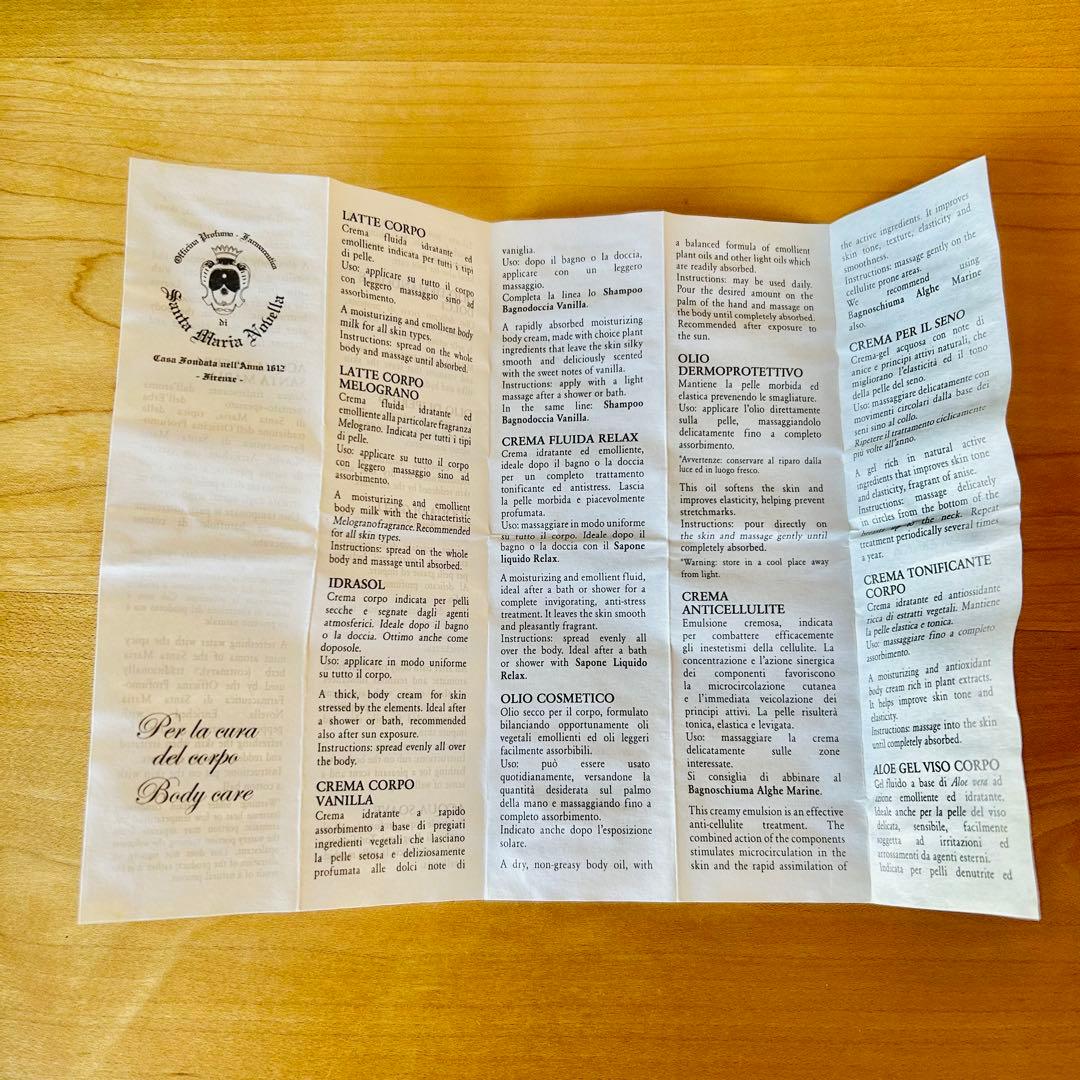 Officina Profumo - Farmaceutica
di
Santa Maria Novella
Casa Fondata nell'Anno 1612
- Firenze -
Per la cura
del corpo
Body care
LATTE CORPO
Crema fluida idratante ed
emolliente indicata per tutti i tipi
di pelle.
Uso: applicare su tutto il corpo
con leggero massaggio sino ad
assorbimento.
A moisturizing and emollient body
milk for all skin types.
Instructions: spread on the whole
body and massage until absorbed.
LATTE CORPO
MELOGRANO
Crema fluida idratante ed
emolliente alla particolare fragranza
Melograno. Indicata per tutti i tipi
di pelle.
Uso: applicare su tutto il corpo
con leggero massaggio sino ad
assorbimento.
A moisturizing and emollient
body milk with the characteristic
Melograno fragrance. Recommended
for all skin types.
Instructions: spread on the whole
body and massage until absorbed.
IDRASOL
Crema corpo indicata per pelli
secche e segnate dagli agenti
atmosferici. Ideale dopo il bagno
o la doccia. Ottimo anche come
doposole.
Uso: applicare in modo uniforme
su tutto il corpo.
A thick, body cream for skin
stressed by the elements. Ideal after
a shower or bath, recommended
also after sun exposure.
Instructions: spread evenly all over
the body.
CREMA CORPO
VANILLA
Crema idratante a rapido
assorbimento a base di pregiati
ingredienti vegetali che lasciano
la pelle setosa e deliziosamente
profumata alle dolci note di
vaniglia.
Uso: dopo il bagno o la doccia,
applicare con un leggero
massaggio.
Completa la linea lo Shampoo
Bagnodoccia Vanilla.
A rapidly absorbed moisturizing
body cream, made with choice plant
ingredients that leave the skin silky
smooth and deliciously scented
with the sweet notes of vanilla.
Instructions: apply with a light
massage after a shower or bath.
In the same line: Shampoo
Bagnodoccia Vanilla.
CREMA FLUIDA RELAX
Crema idratante ed emolliente,
ideale dopo il bagno o la doccia
per un completo trattamento
tonificante ed antistress. Lascia
la pelle morbida e piacevolmente
profumata.
Uso: massaggiare in modo uniforme
su tutto il corpo. Ideale dopo il
bagno o la doccia con il Sapone
liquido Relax.
A moisturizing and emollient fluid,
ideal after a bath or shower for a
complete invigorating, anti-stress
treatment. It leaves the skin smooth
and pleasantly fragrant.
Instructions: spread evenly all
over the body. Ideal after a bath
or shower with Sapone Liquido
Relax.
OLIO COSMETICO
Olio secco per il corpo, formulato
bilanciando opportunamente oli
vegetali emollienti ed oli leggeri
facilmente assorbibili.
Uso: può essere usato
quotidianamente, versandone la
quantità desiderata sul palmo
della mano e massaggiando fino a
completo assorbimento.
Indicato anche dopo l'esposizione
solare.
A dry, non-greasy body oil, with
a balanced formula of emollient
plant oils and other light oils which
are readily absorbed.
Instructions: may be used daily.
Pour the desired amount on the
palm of the hand and massage on
the body until completely absorbed.
Recommended after exposure to
the sun.
OLIO
DERMOPROTETTIVO
Mantiene la pelle morbida ed
elastica prevenendo le smagliature.
Uso: applicare l'olio direttamente
sulla pelle, massaggiandolo
delicatamente fino a completo
assorbimento.
*Avvertenze: conservare al riparo dalla
luce ed in luogo fresco.
This oil softens the skin and
improves elasticity, helping prevent
stretchmarks.
Instructions: pour directly on
the skin and massage gently until
completely absorbed.
*Warning: store in a cool place away
from light.
CREMA
ANTICELLULITE
Emulsione cremosa, indicata
per combattere efficacemente
gli inestetismi della cellulite. La
concentrazione e l'azione sinergica
dei componenti favoriscono
la microcircolazione cutanea
e l'immediata veicolazione dei
principi attivi. La pelle risulterà
tonica, elastica e levigata.
Uso: massaggiare la crema
delicatamente sulle zone
interessate.
Si consiglia di abbinare al
Bagnoschiuma Alghe Marine.
This creamy emulsion is an effective
anti-cellulite treatment. The
combined action of the components
stimulates microcirculation in the
skin and the rapid assimilation of
the active ingredients. It improves
skin tone, texture, elasticity and
smoothness.
Instructions: massage gently on the
cellulite prone areas.
We recommend using
Bagnoschiuma Alghe Marine
also.
CREMA PER IL SENO
Crema-gel acquosa con note di
anice e principi attivi naturali, che
migliorano l'elasticità ed il tono
della pelle del seno.
Uso: massaggiare delicatamente con
movimenti circolari dalla base dei
seni sino al collo.
Ripetere il trattamento ciclicamente
più volte all'anno.
A gel rich in natural active
ingredients that improves skin tone
and elasticity, fragrant of anise.
Instructions: massage delicately
in circles from the bottom of the
to the neck. Repeat
treatment periodically several times
a year.
CREMA TONIFICANTE
CORPO
Crema idratante ed antiossidante
ricca di estratti vegetali. Mantiene
la pelle elastica e tonica.
Uso: massaggiare fino a completo
assorbimento.
A moisturizing and antioxidant
body cream rich in plant extracts.
It helps improve skin tone and
elasticity.
Instructions: massage into the skin
until completely absorbed.
ALOE GEL VISO CORPO
Gel fluido a base di Aloe vera ad
azione emolliente ed idratante.
Ideale anche per la pelle del viso
delicata, sensibile, facilmente
soggetta ad irritazioni ed
arrossamenti da agenti esterni.
Indicata per pelli denutrite ed